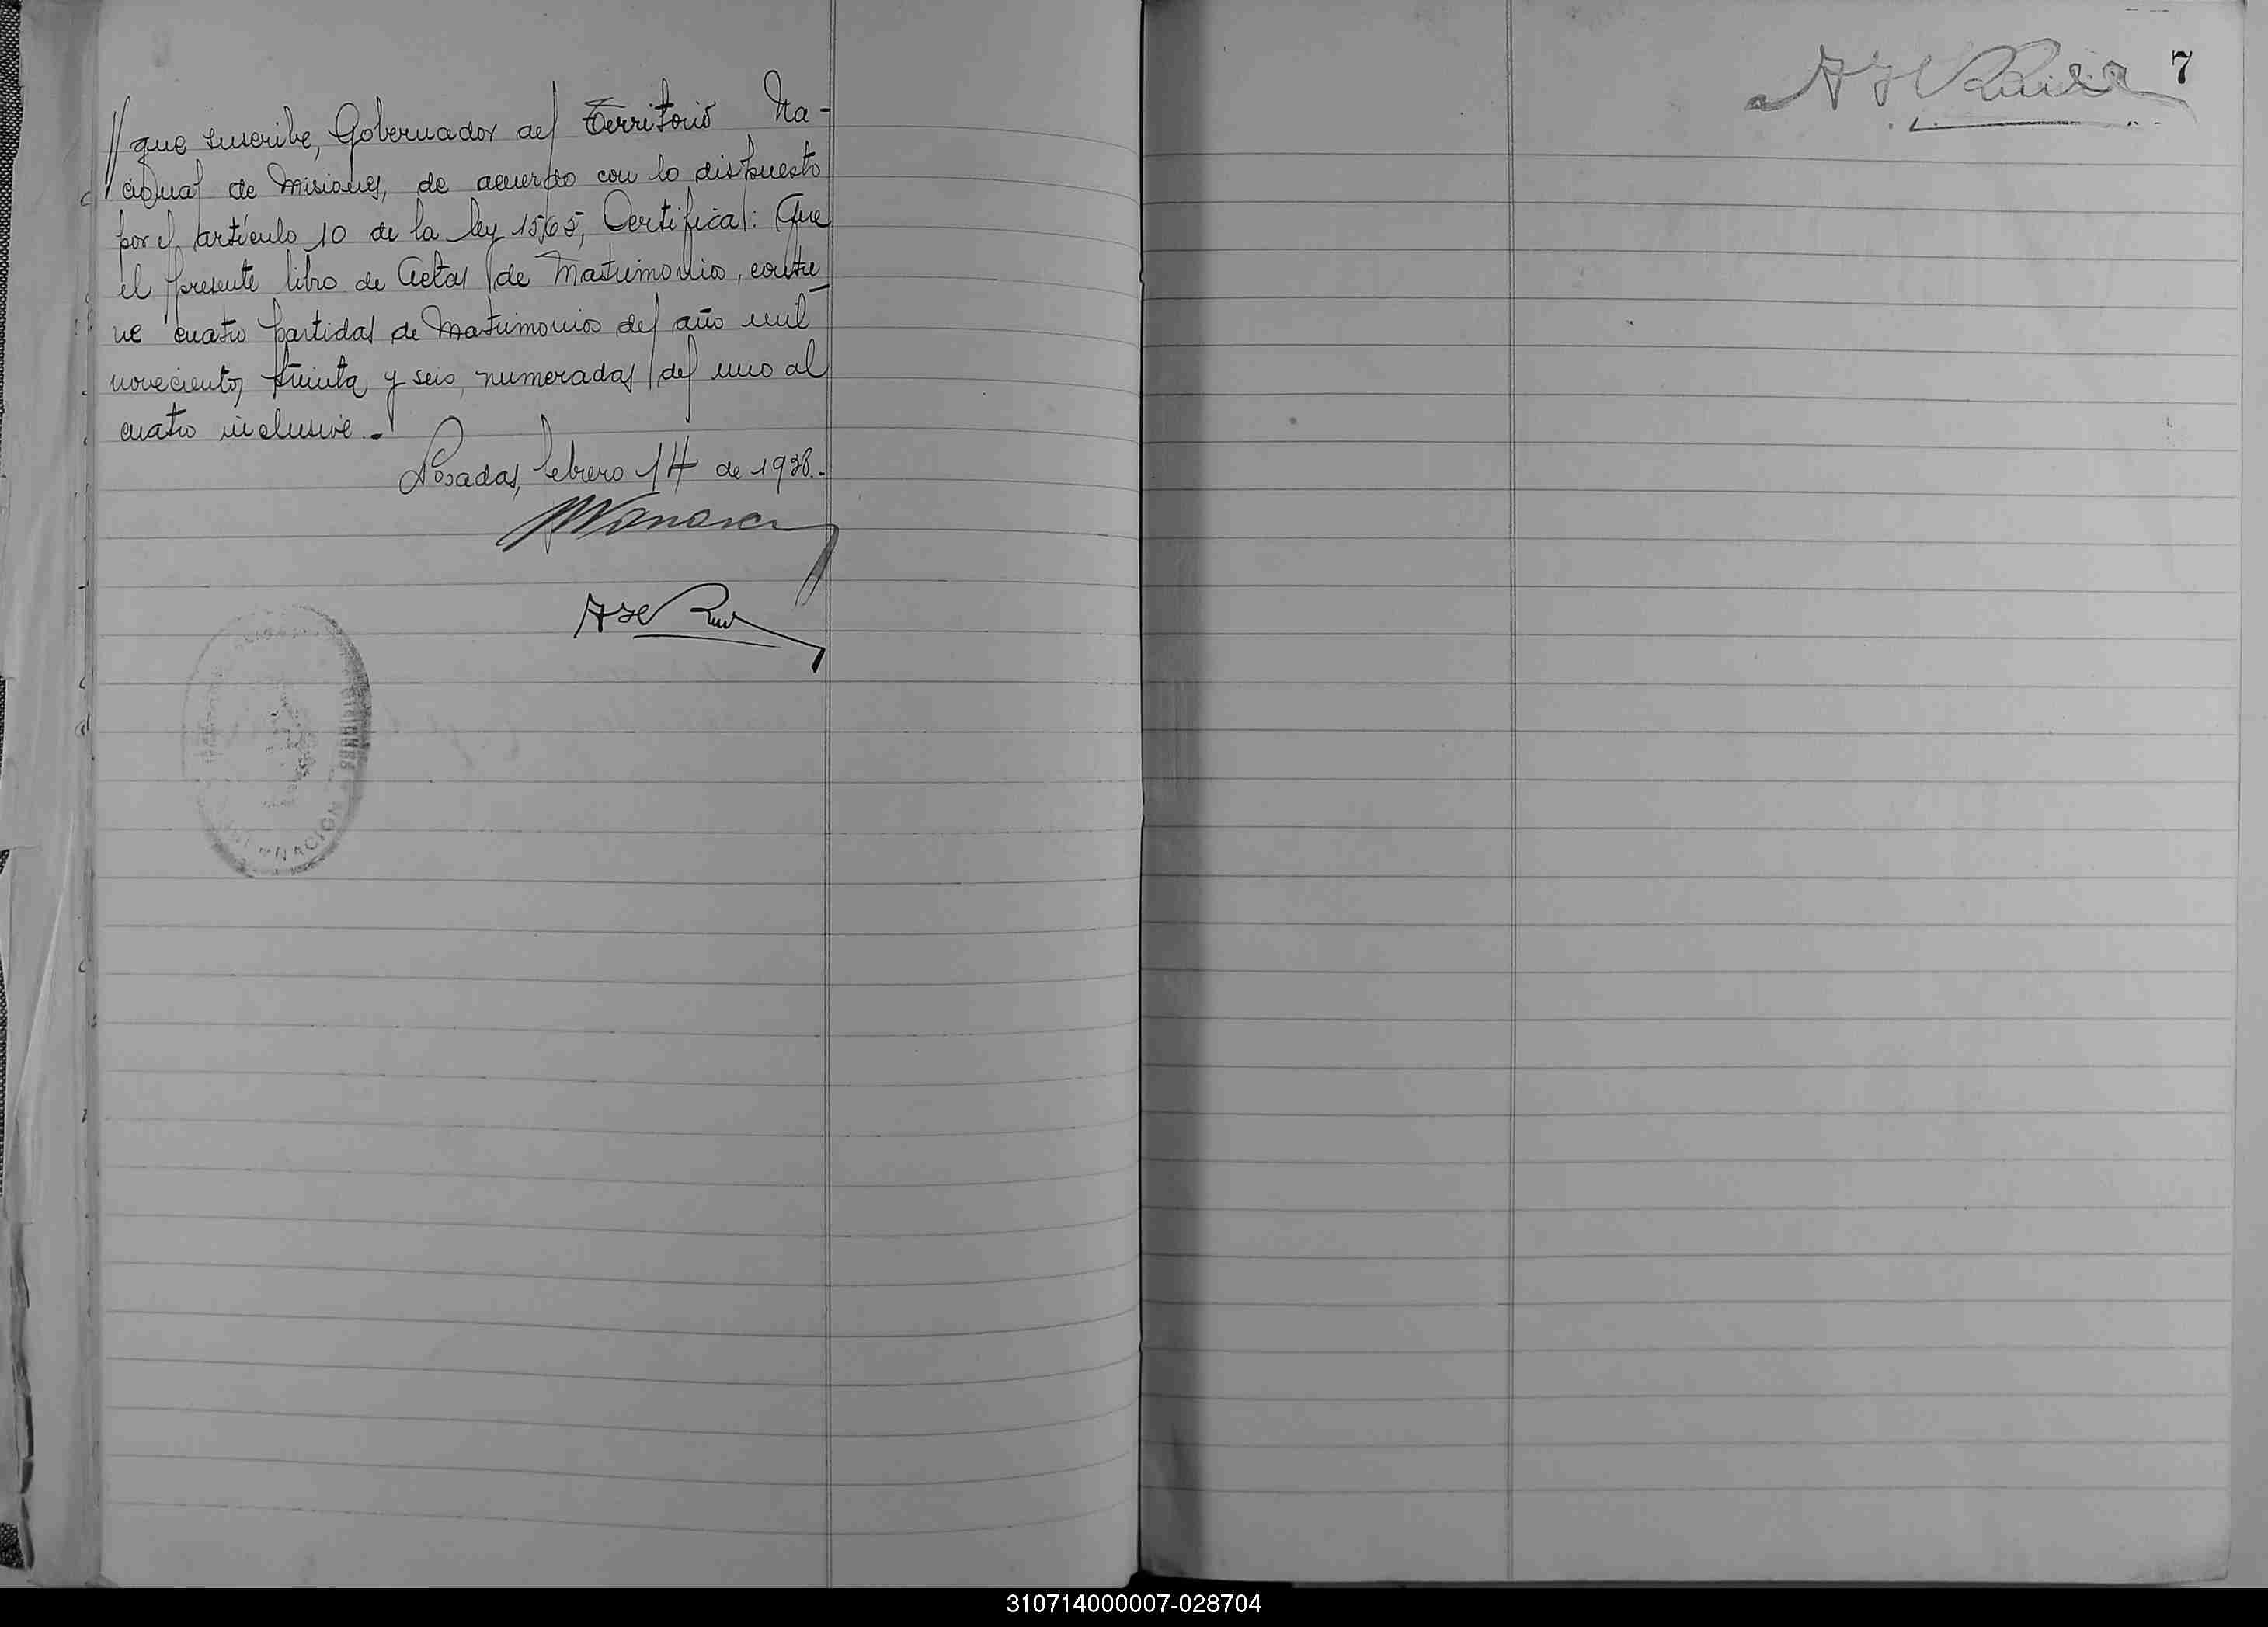 // que suscribe, Gobernador del Territorio Na-
cional de Misiones, de acuerdo con lo dispuesto
por el artículo 10 de la ley 1565, Certifica: Que
el presente libro de Actas de Matrimonio, contie-
ne cuatro partidas de Matrimonio del año mil
novecientos treinta y seis, numeradas del uno al
cuatro inclusive.-
Posadas, febrero 14 de 1938.-
NACION
7
310714000007-028704